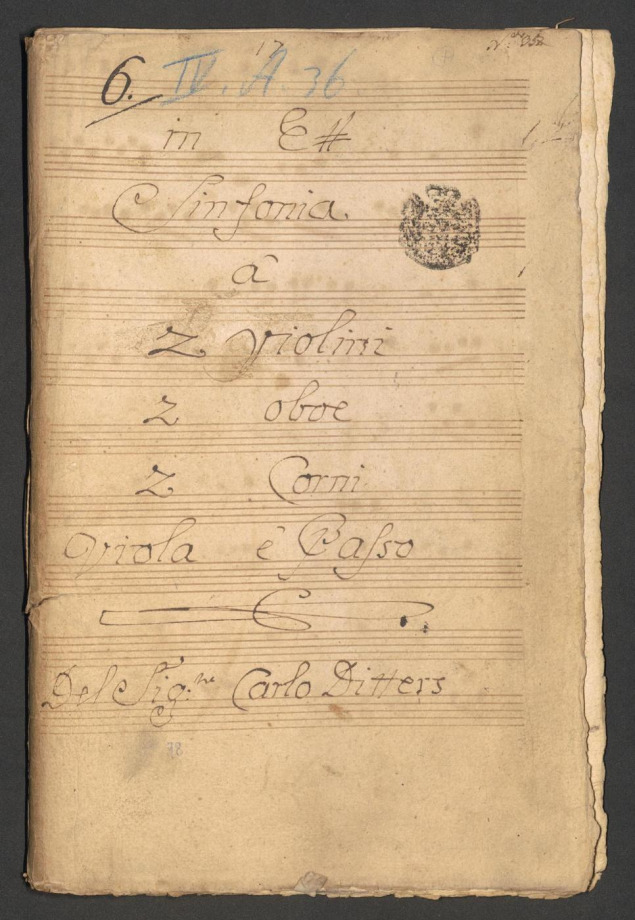 17
6. IV. A. 36
in E#
Sinfonia.
â
2 Violini
2 oboe
2 Corni
Viola è Basso
Del Sig:re Carlo Ditters
78